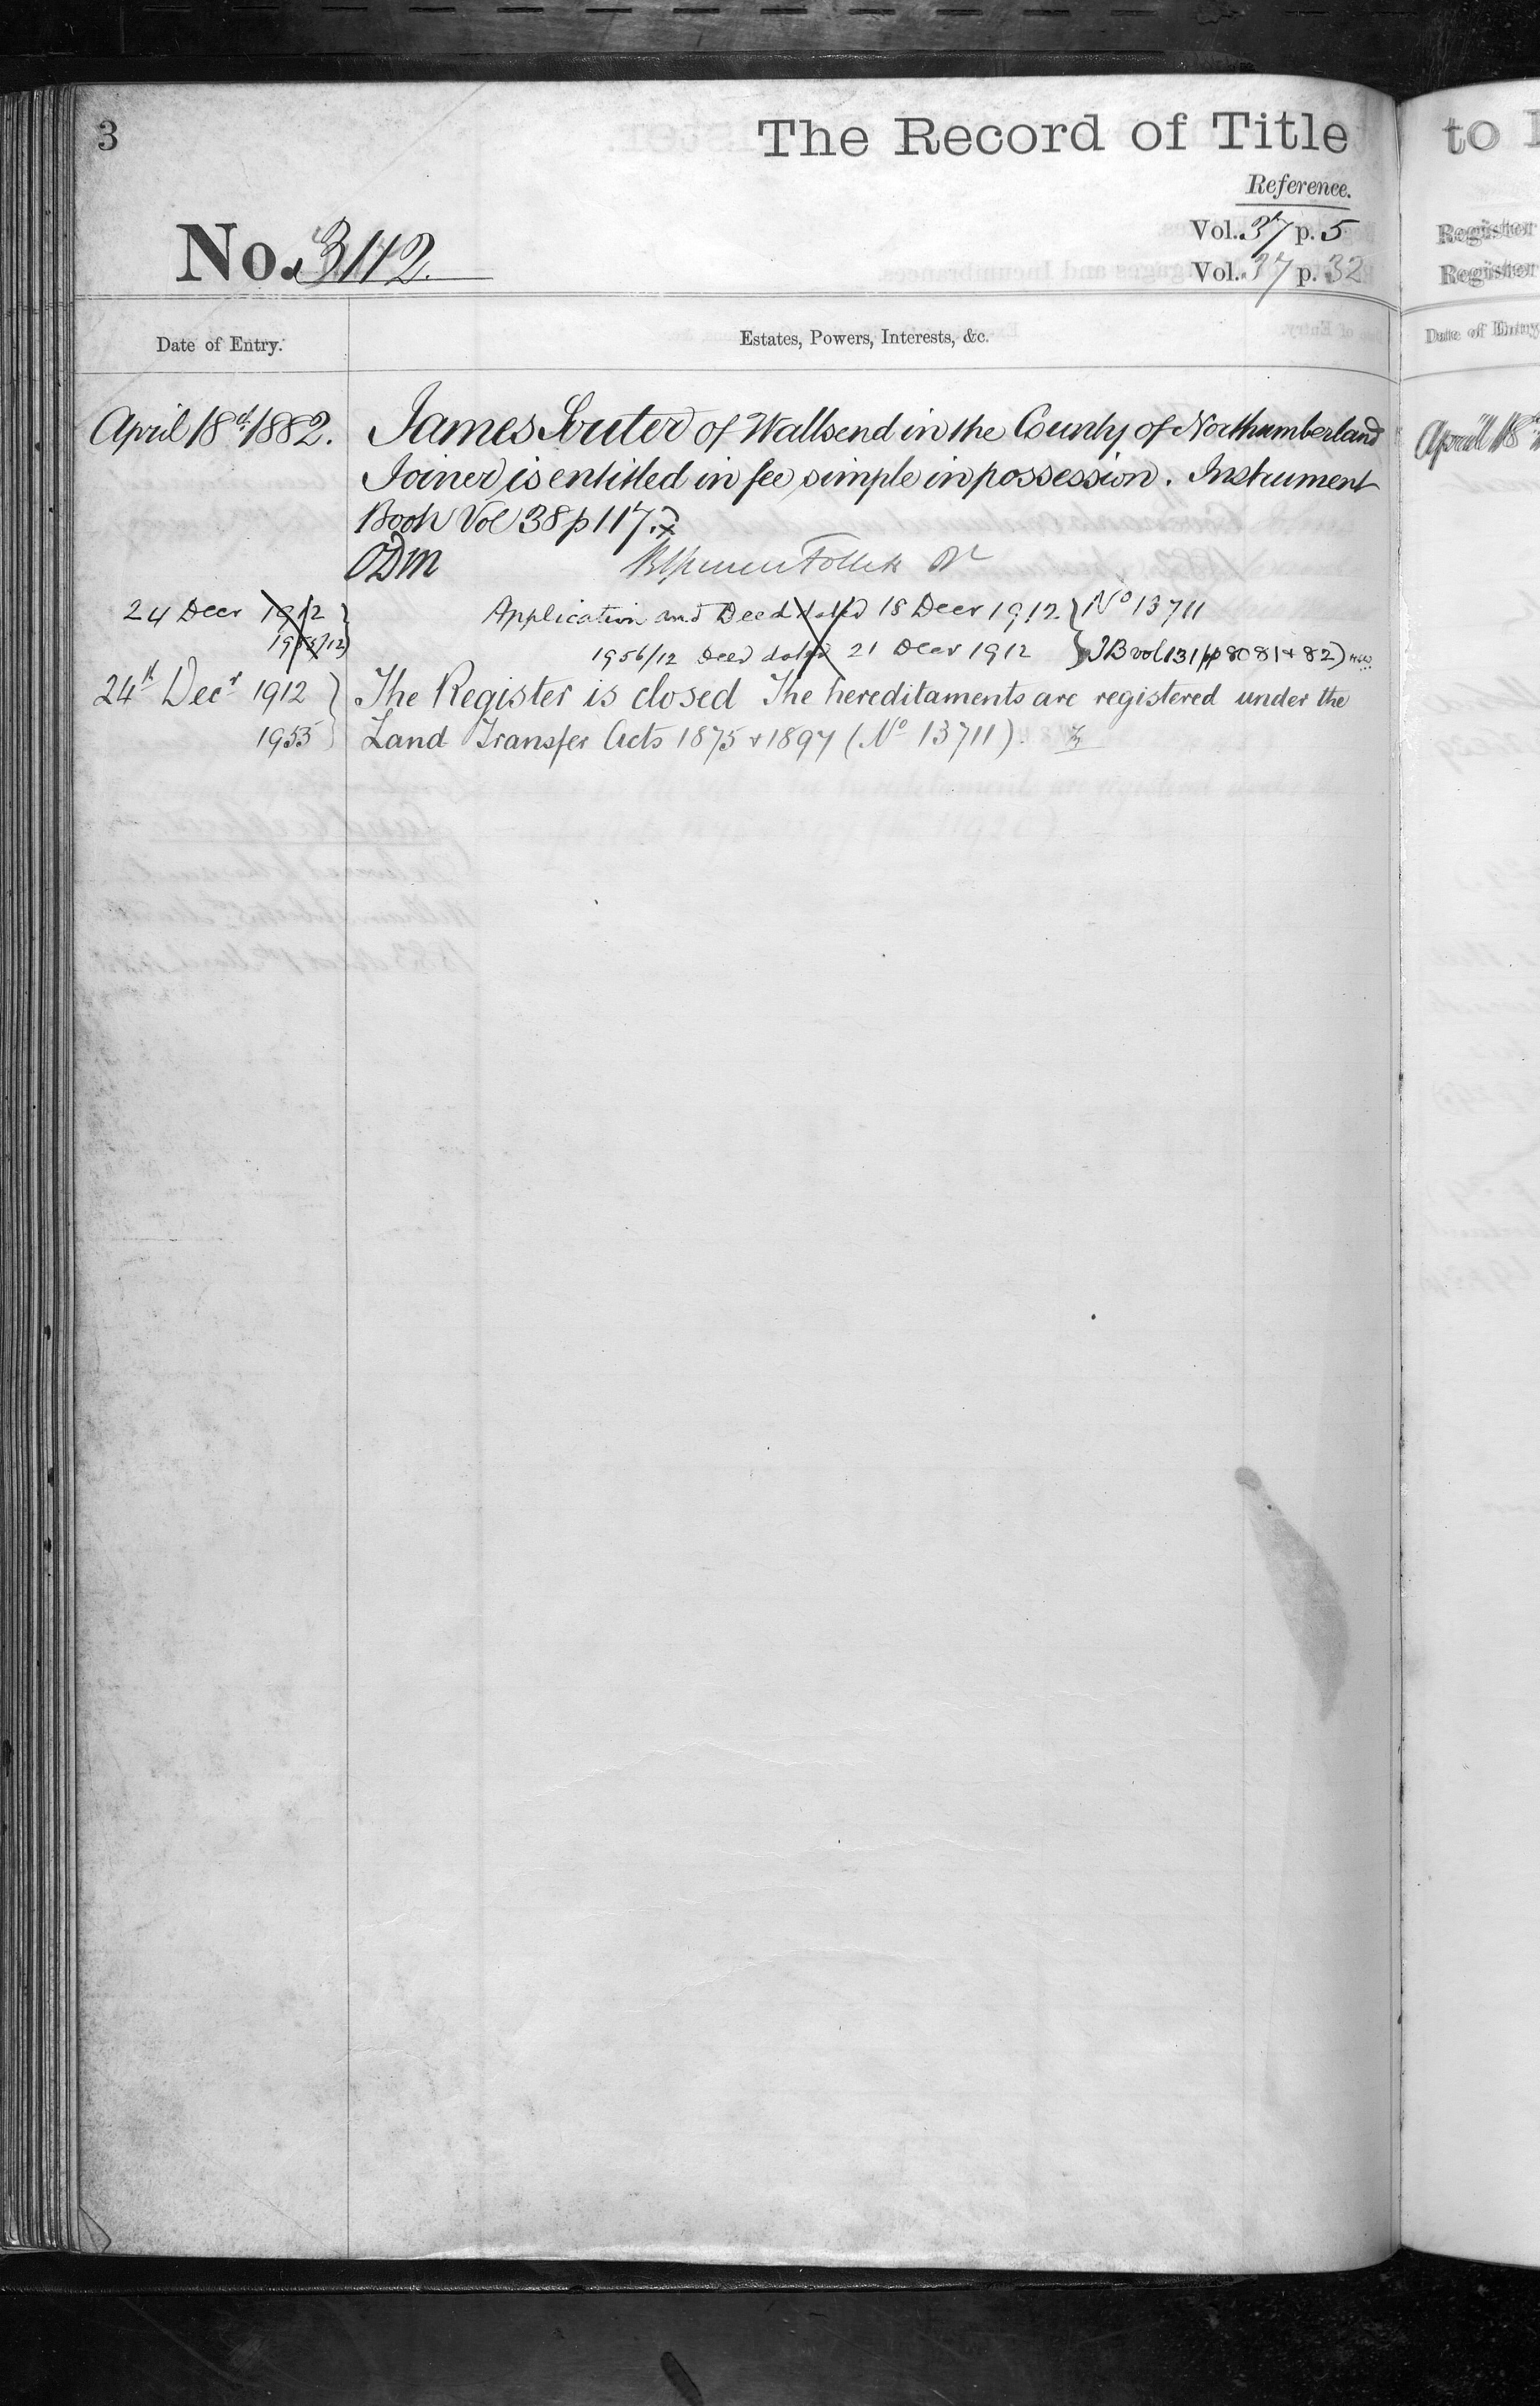 3
The Record of Title
Reference.
No. 3142.
Vol. 37 p. 5
Vol. 37 p. 32
Date of Entry.
Estates, Powers, Interests, &c.
April 18th 1882.
James Souter of Wallsend in the County of Northumberland
Joiner is entitled in fee simple in possession. Instrument
Book Vol 38 p 117.
ODM
24 Decr 1912
1955/12
Application and Deed dated 18 Decr 1912 } No 13711
1956/12 Deed dated 21 Decr 1912 } IB vol 131 pp 80 81 & 82)
24th Decr 1912
The Register is closed The hereditaments are registered under the
1955
Land Transfer Acts 1875 & 1897 (No 13711).
to
Register
Register
Date of Entry
April 18th